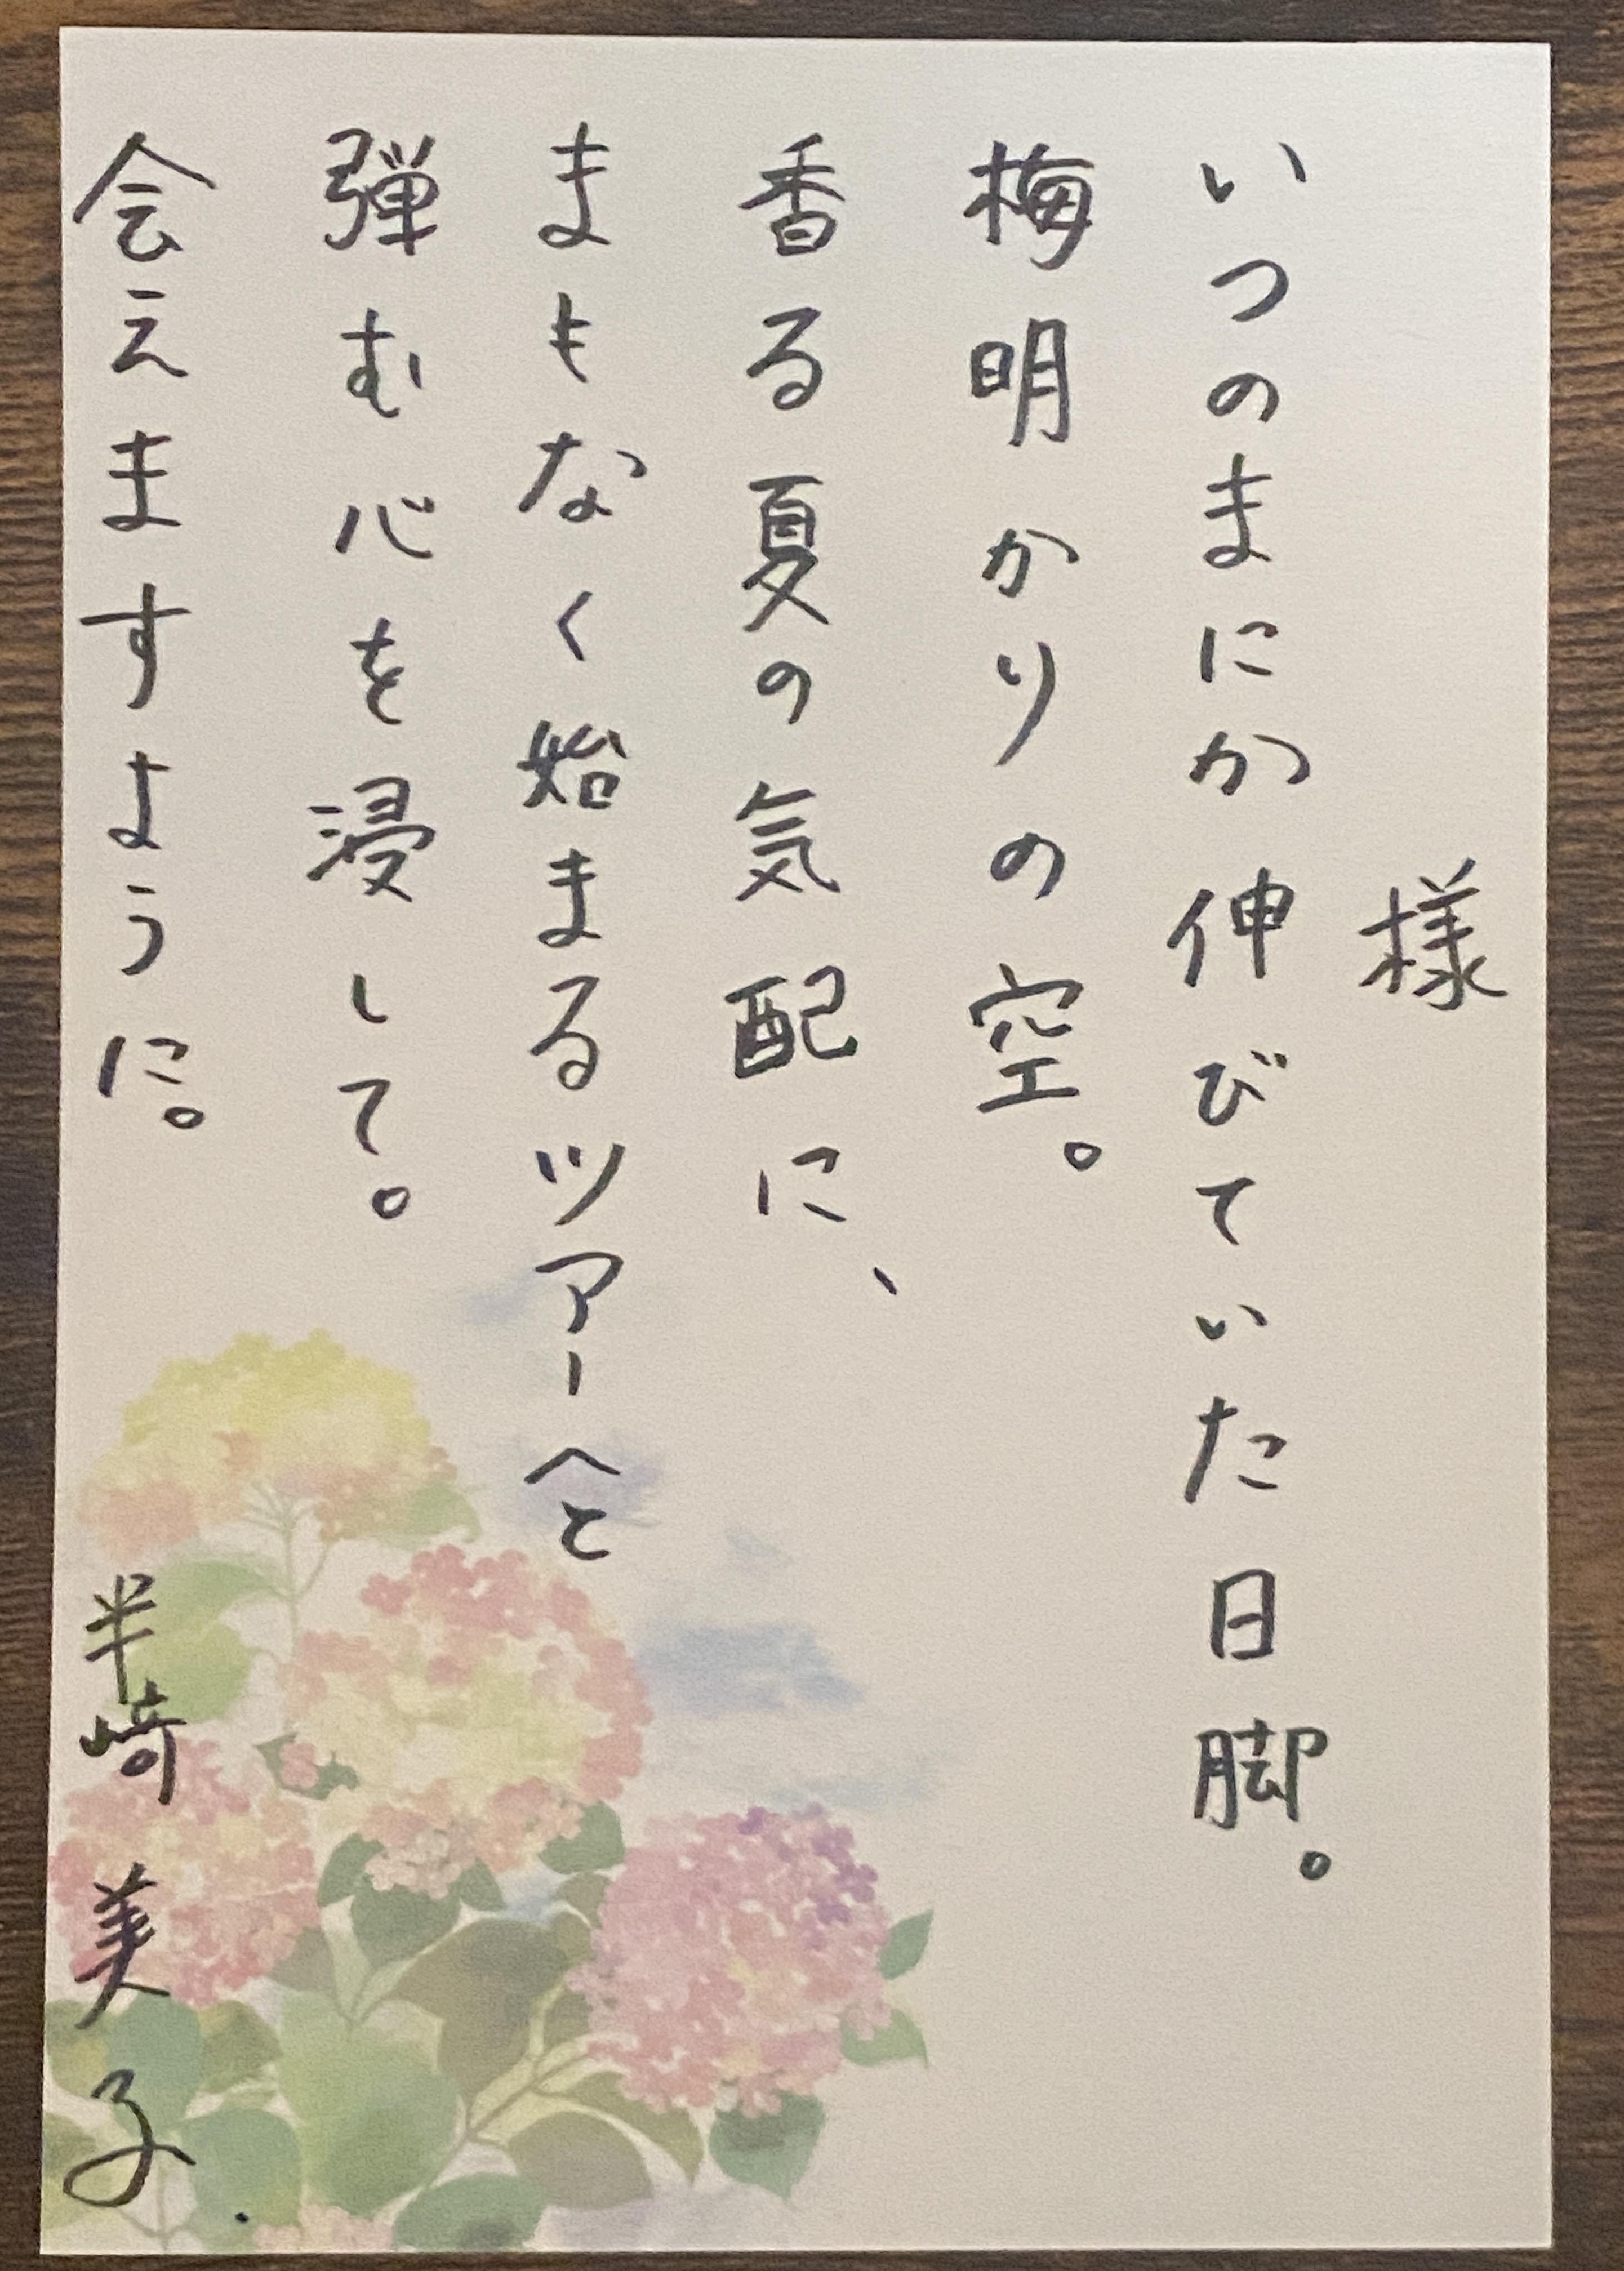 様
いつのまにか伸びていた日脚。
梅明かりの空。
香る夏の気配に、
まもなく始まるツアーへと
弾む心を浸して。
会えますように。
半崎美子